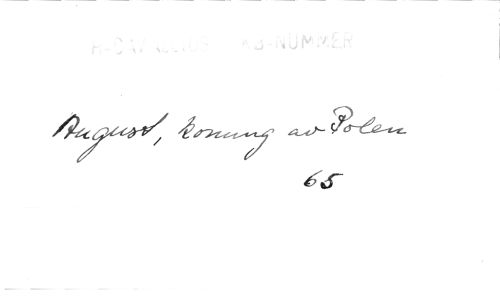 KB-NUMMER
August, konung av Polen
65